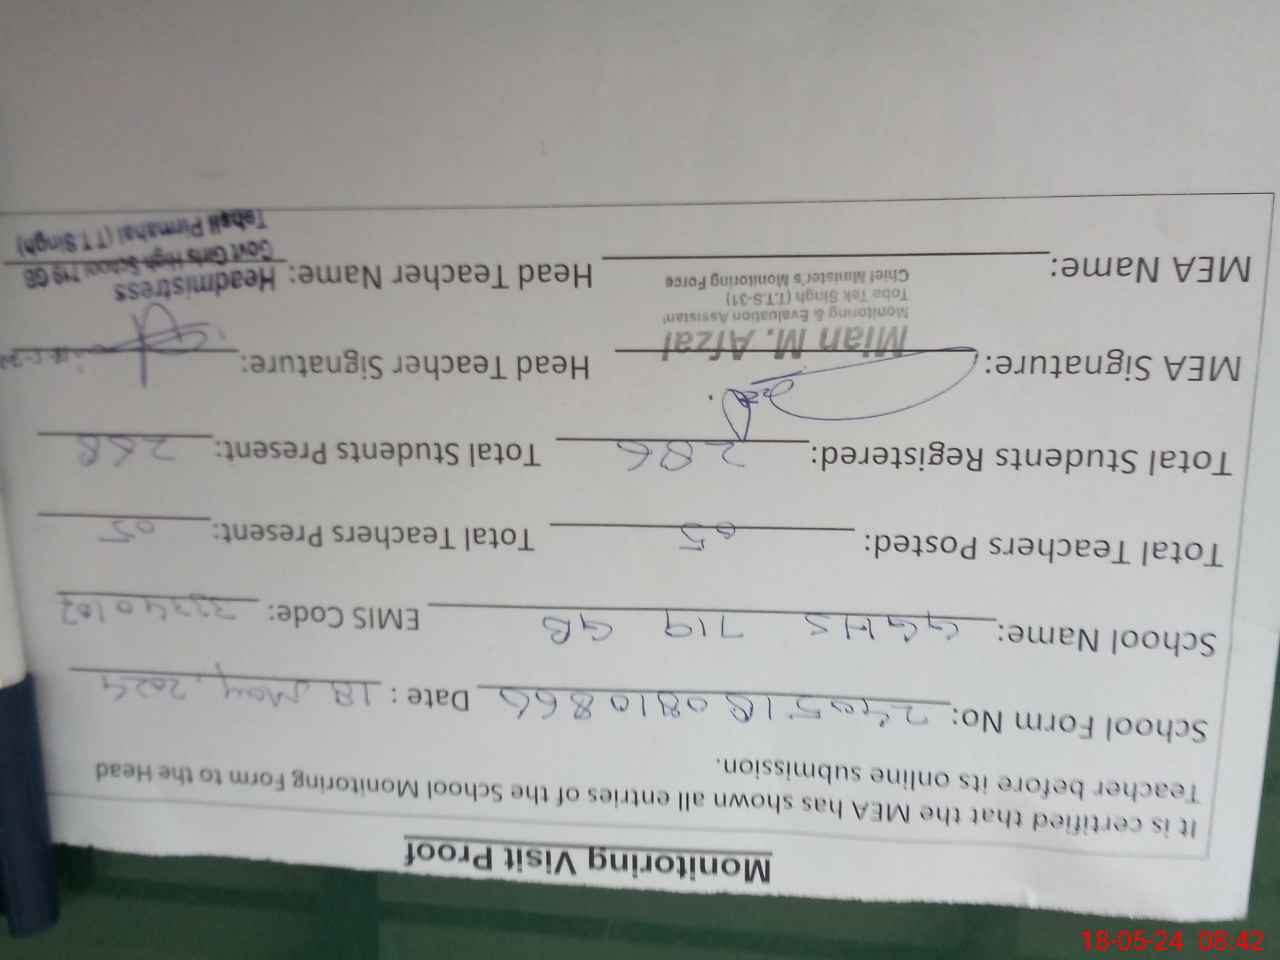 Monitoring Visit Proof
It is certified that the MEA has shown all entries of the School Monitoring Form to the Head
Teacher before its online submission.
School Form No: 240518 0810866 Date : 18 May, 2024
School Name: GGHS 719 GB EMIS Code:
Total Teachers Posted: 05 Total Teachers Present: 05
Total Students Registered: 286 Total Students Present: 268
MEA Signature: Head Teacher Signature:
Mian M. Afzal
Monitoring & Evaluation Assistant
Toba Tek Singh (T.T.S-31)
Chief Minister's Monitoring Force
MEA Name: Head Teacher Name: Headmistress
Govt Girls High School 719 GB
Tehsil Pirmahal (T.T.Singh)
18-05-24 08:42